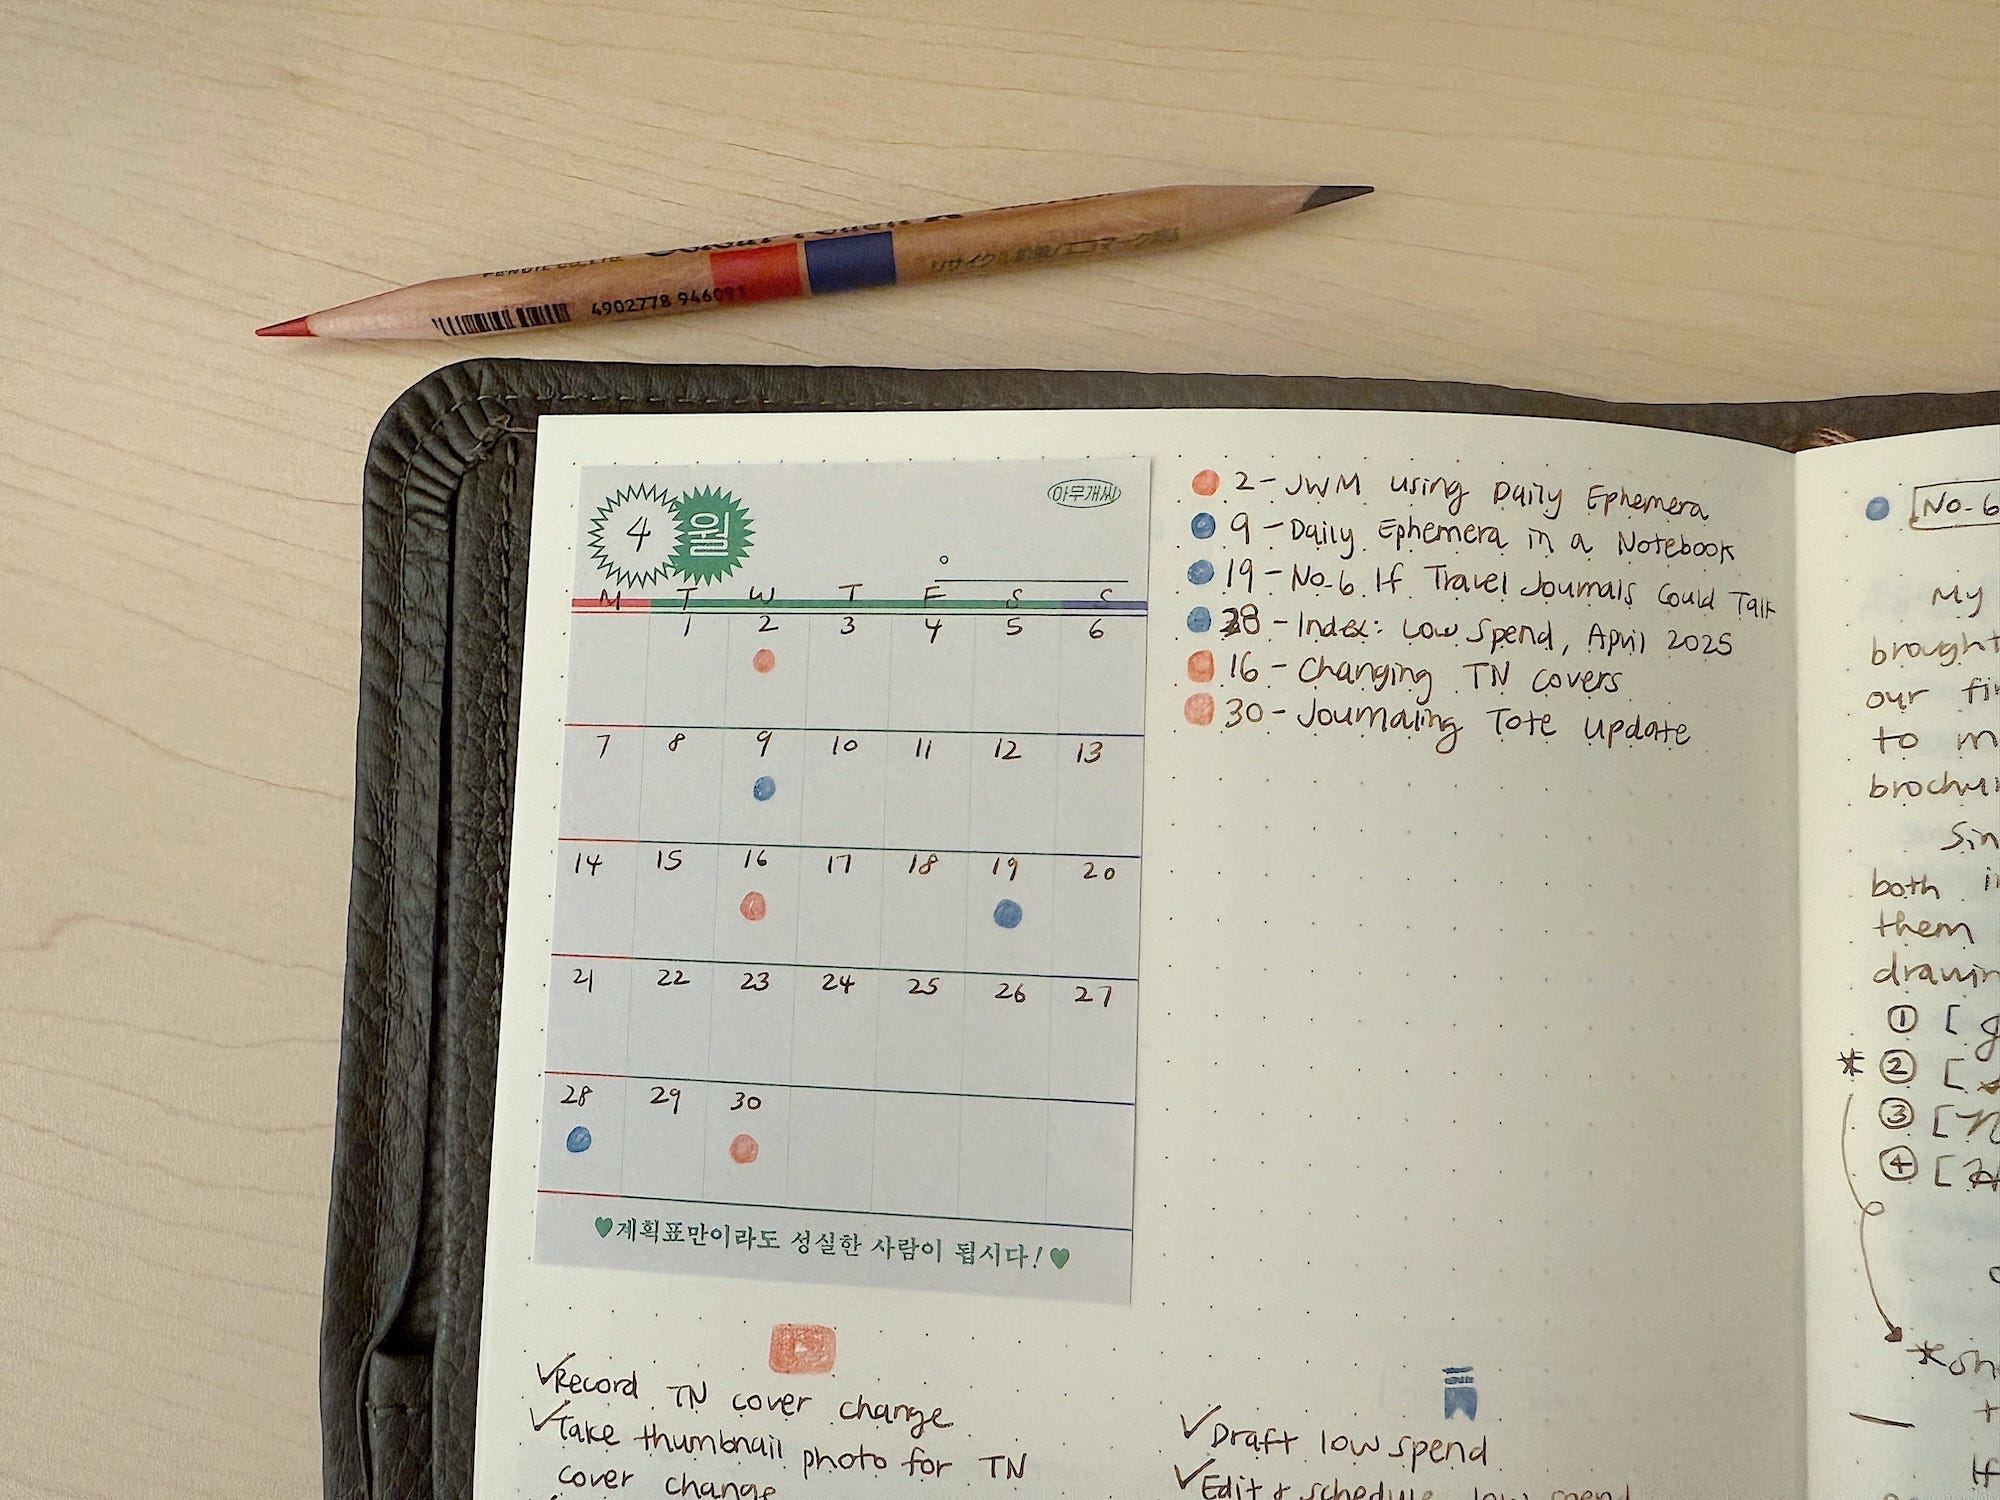 4902778 946091
4 월
아무개씨
M T W T F S S
1 2 3 4 5 6
7 8 9 10 11 12 13
14 15 16 17 18 19 20
21 22 23 24 25 26 27
28 29 30
계획표만이라도 성실한 사람이 됩시다!
2 - JWM using Daily Ephemera
9 - Daily Ephemera in a Notebook
19 - No. 6 If Travel Journals Could Talk
28 - Index: Low Spend, April 2025
16 - Changing TN covers
30 - Journaling Tote Update
✓Record TN cover change
✓Take thumbnail photo for TN
cover change
✓Draft low spend
✓Edit & schedule low spend
No. 6
My
brought
our
to
both
them
①[
*②[
③[
④[
*
If